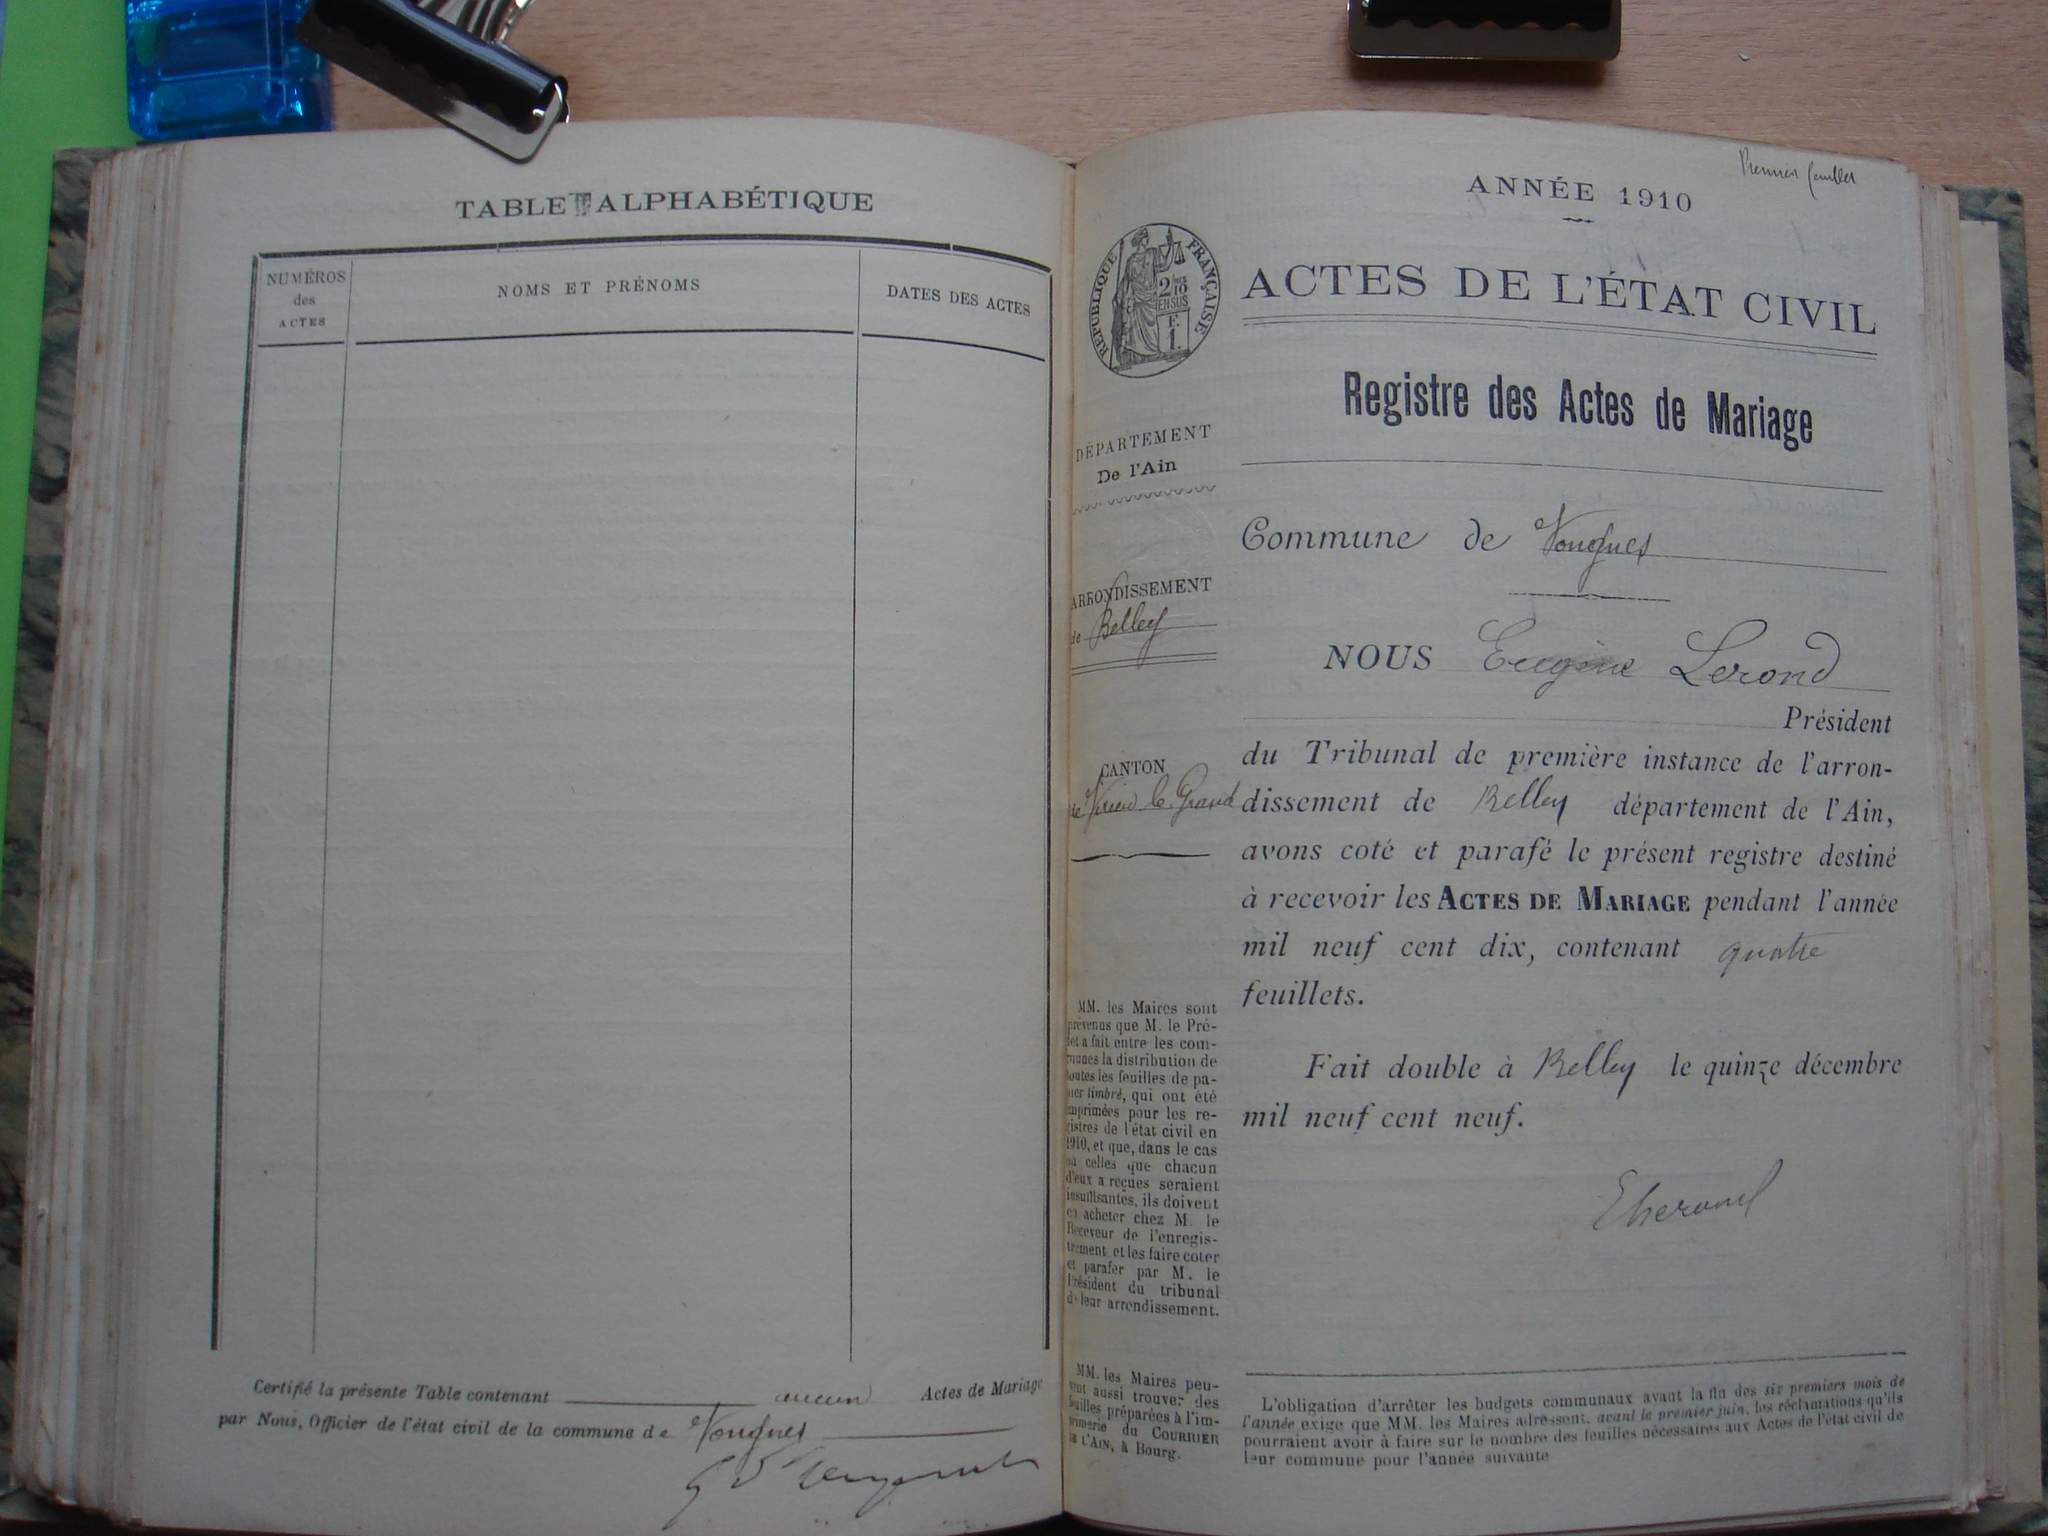 TABLE ALPHABÉTIQUE
NUMÉROS
des
ACTES
NOMS ET PRÉNOMS
DATES DES ACTES
Certifié la présente Table contenant aucun Actes de Mariage
par Nous, Officier de l'état civil de la commune de Vongnes
Premier feuillet
ANNÉE 1910
RÉPUBLIQUE FRANÇAISE
2/10
EN SUS
F.
1.
ACTES DE L'ÉTAT CIVIL
Registre des Actes de Mariage
DÉPARTEMENT
De l'Ain
ARRONDISSEMENT
de Belley
CANTON
de Virieu le Grand
MM. les Maires sont
prévenus que M. le Pré-
fet a fait entre les com-
munes la distribution de
toutes les feuilles de pa-
pier timbré, qui ont été
imprimées pour les re-
gistres de l'état civil en
1910, et que, dans le cas
où celles que chacun
d'eux a reçues seraient
insuffisantes, ils doivent
en acheter chez M. le
Receveur de l'enregis-
trement, et les faire coter
et parafer par M. le
Président du tribunal
de leur arrondissement.
MM. les Maires peu-
vent aussi trouver des
feuilles préparées à l'im-
primerie du COURRIER
de L'AIN, à Bourg.
Commune de Vongnes
NOUS Eugène Lerond
Président
du Tribunal de première instance de l'arron-
dissement de Belley département de l'Ain,
avons coté et parafé le présent registre destiné
à recevoir les ACTES DE MARIAGE pendant l'année
mil neuf cent dix, contenant quatre
feuillets.
Fait double à Belley le quinze décembre
mil neuf cent neuf.
L'obligation d'arrêter les budgets communaux avant la fin des six premiers mois de
l'année exige que MM. les Maires adressent, avant le premier juin, les réclamations qu'ils
pourraient avoir à faire sur le nombre des feuilles nécessaires aux Actes de l'état civil de
leur commune pour l'année suivante